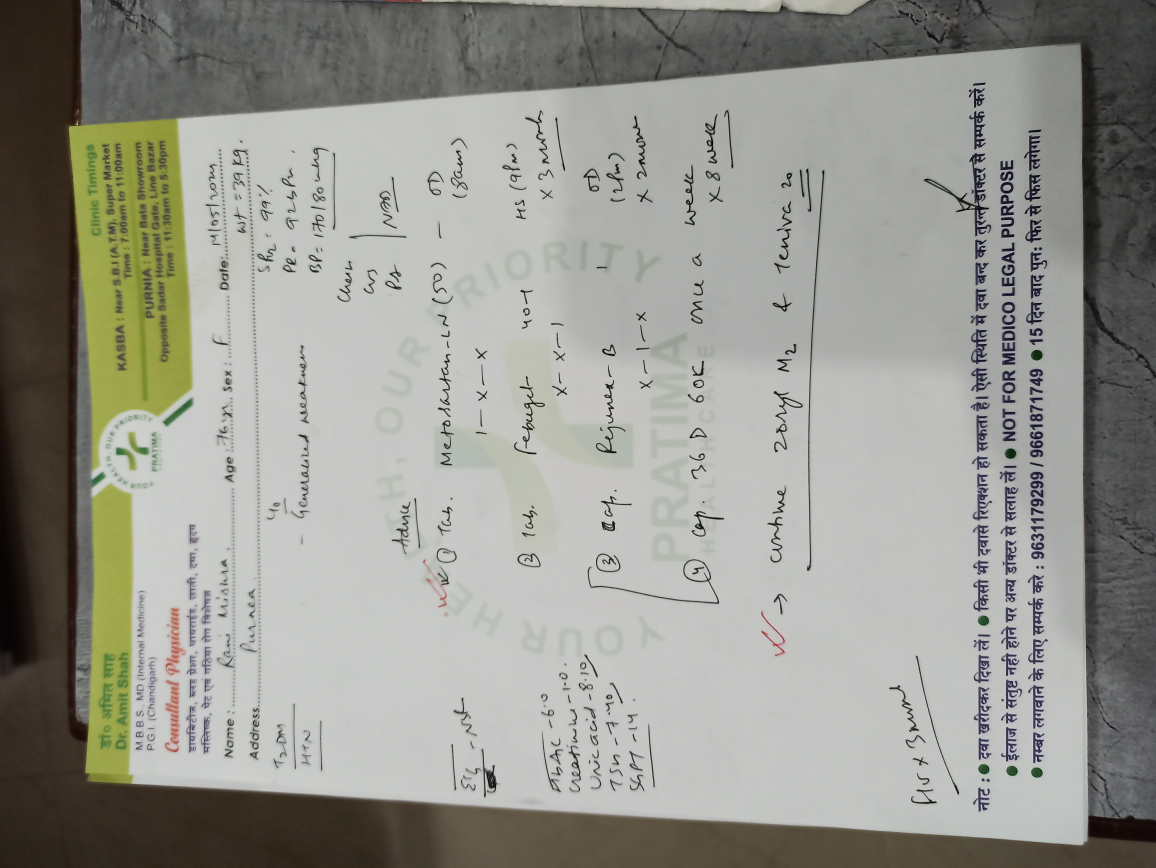 डा० अमित साह
Dr. Amit Shah
M.B.B.S., MD (Internal Medicine)
P.G.I. (Chandigarh)
Consultant Physician
डायबिटीज, ब्लड प्रेशर, थायराईड, छाती, दमा, हृदय
मस्तिष्क, पेट एवं गठिया रोग विशेषज्ञ
YOUR HEALTH, OUR PRIORITY
PRATIMA
Clinic Timings
KASBA : Near S.B.I (A.T.M), Super Market
Time : 7:00am to 11:00am
PURNIA : Near Bata Showroom
Opposite Sadar Hospital Gate, Line Bazar
Time : 11:30am to 5:30pm
Name : Rani Mishra Age : 76 Sex : F Date:
Address Purnea wt = 39 kg.
T2DM
HTN
c/o
- Generalized weakness
SPO2 = 99%
PR = 92 bpm
BP = 170/80 mmHg
Chest
CVS
PA
NAD
Advice
① Tab. Metosartan-LN (50) - OD
1-x-x (8am)
② Tab. Febuget 40 -1 HS (9pm)
x-x-1 x 3 month
③ Cap. Rejunex-B 1 OD
x-1-x (2pm)
x 2 month
④ Cap. 36 D 60K once a week
x 8 week
→ continue Zoryl M2 & Teniva 20
ECG - NSR
HbA1c - 6.0
Creatinine - 1.0
Uric acid - 8.10
TSH - 7.40
SGPT - 14
F/U x 3 month
YOUR HEALTH, OUR PRIORITY
PRATIMA
HEALTHCARE
नोट : ● दवा खरीदकर दिखा लें। ● किसी भी दवासे रिएक्शन हो सकता है। ऐसी स्थिति में दवा बन्द कर तुरन्त डॉक्टर से सम्पर्क करें।
● ईलाज से संतुष्ट नही होने पर अन्य डॉक्टर से सलाह लें। ● NOT FOR MEDICO LEGAL PURPOSE
● नम्बर लगवाने के लिए सम्पर्क करे : 9631179299 / 9661871749 ● 15 दिन बाद पुन: फिर से फिस लगेगा।